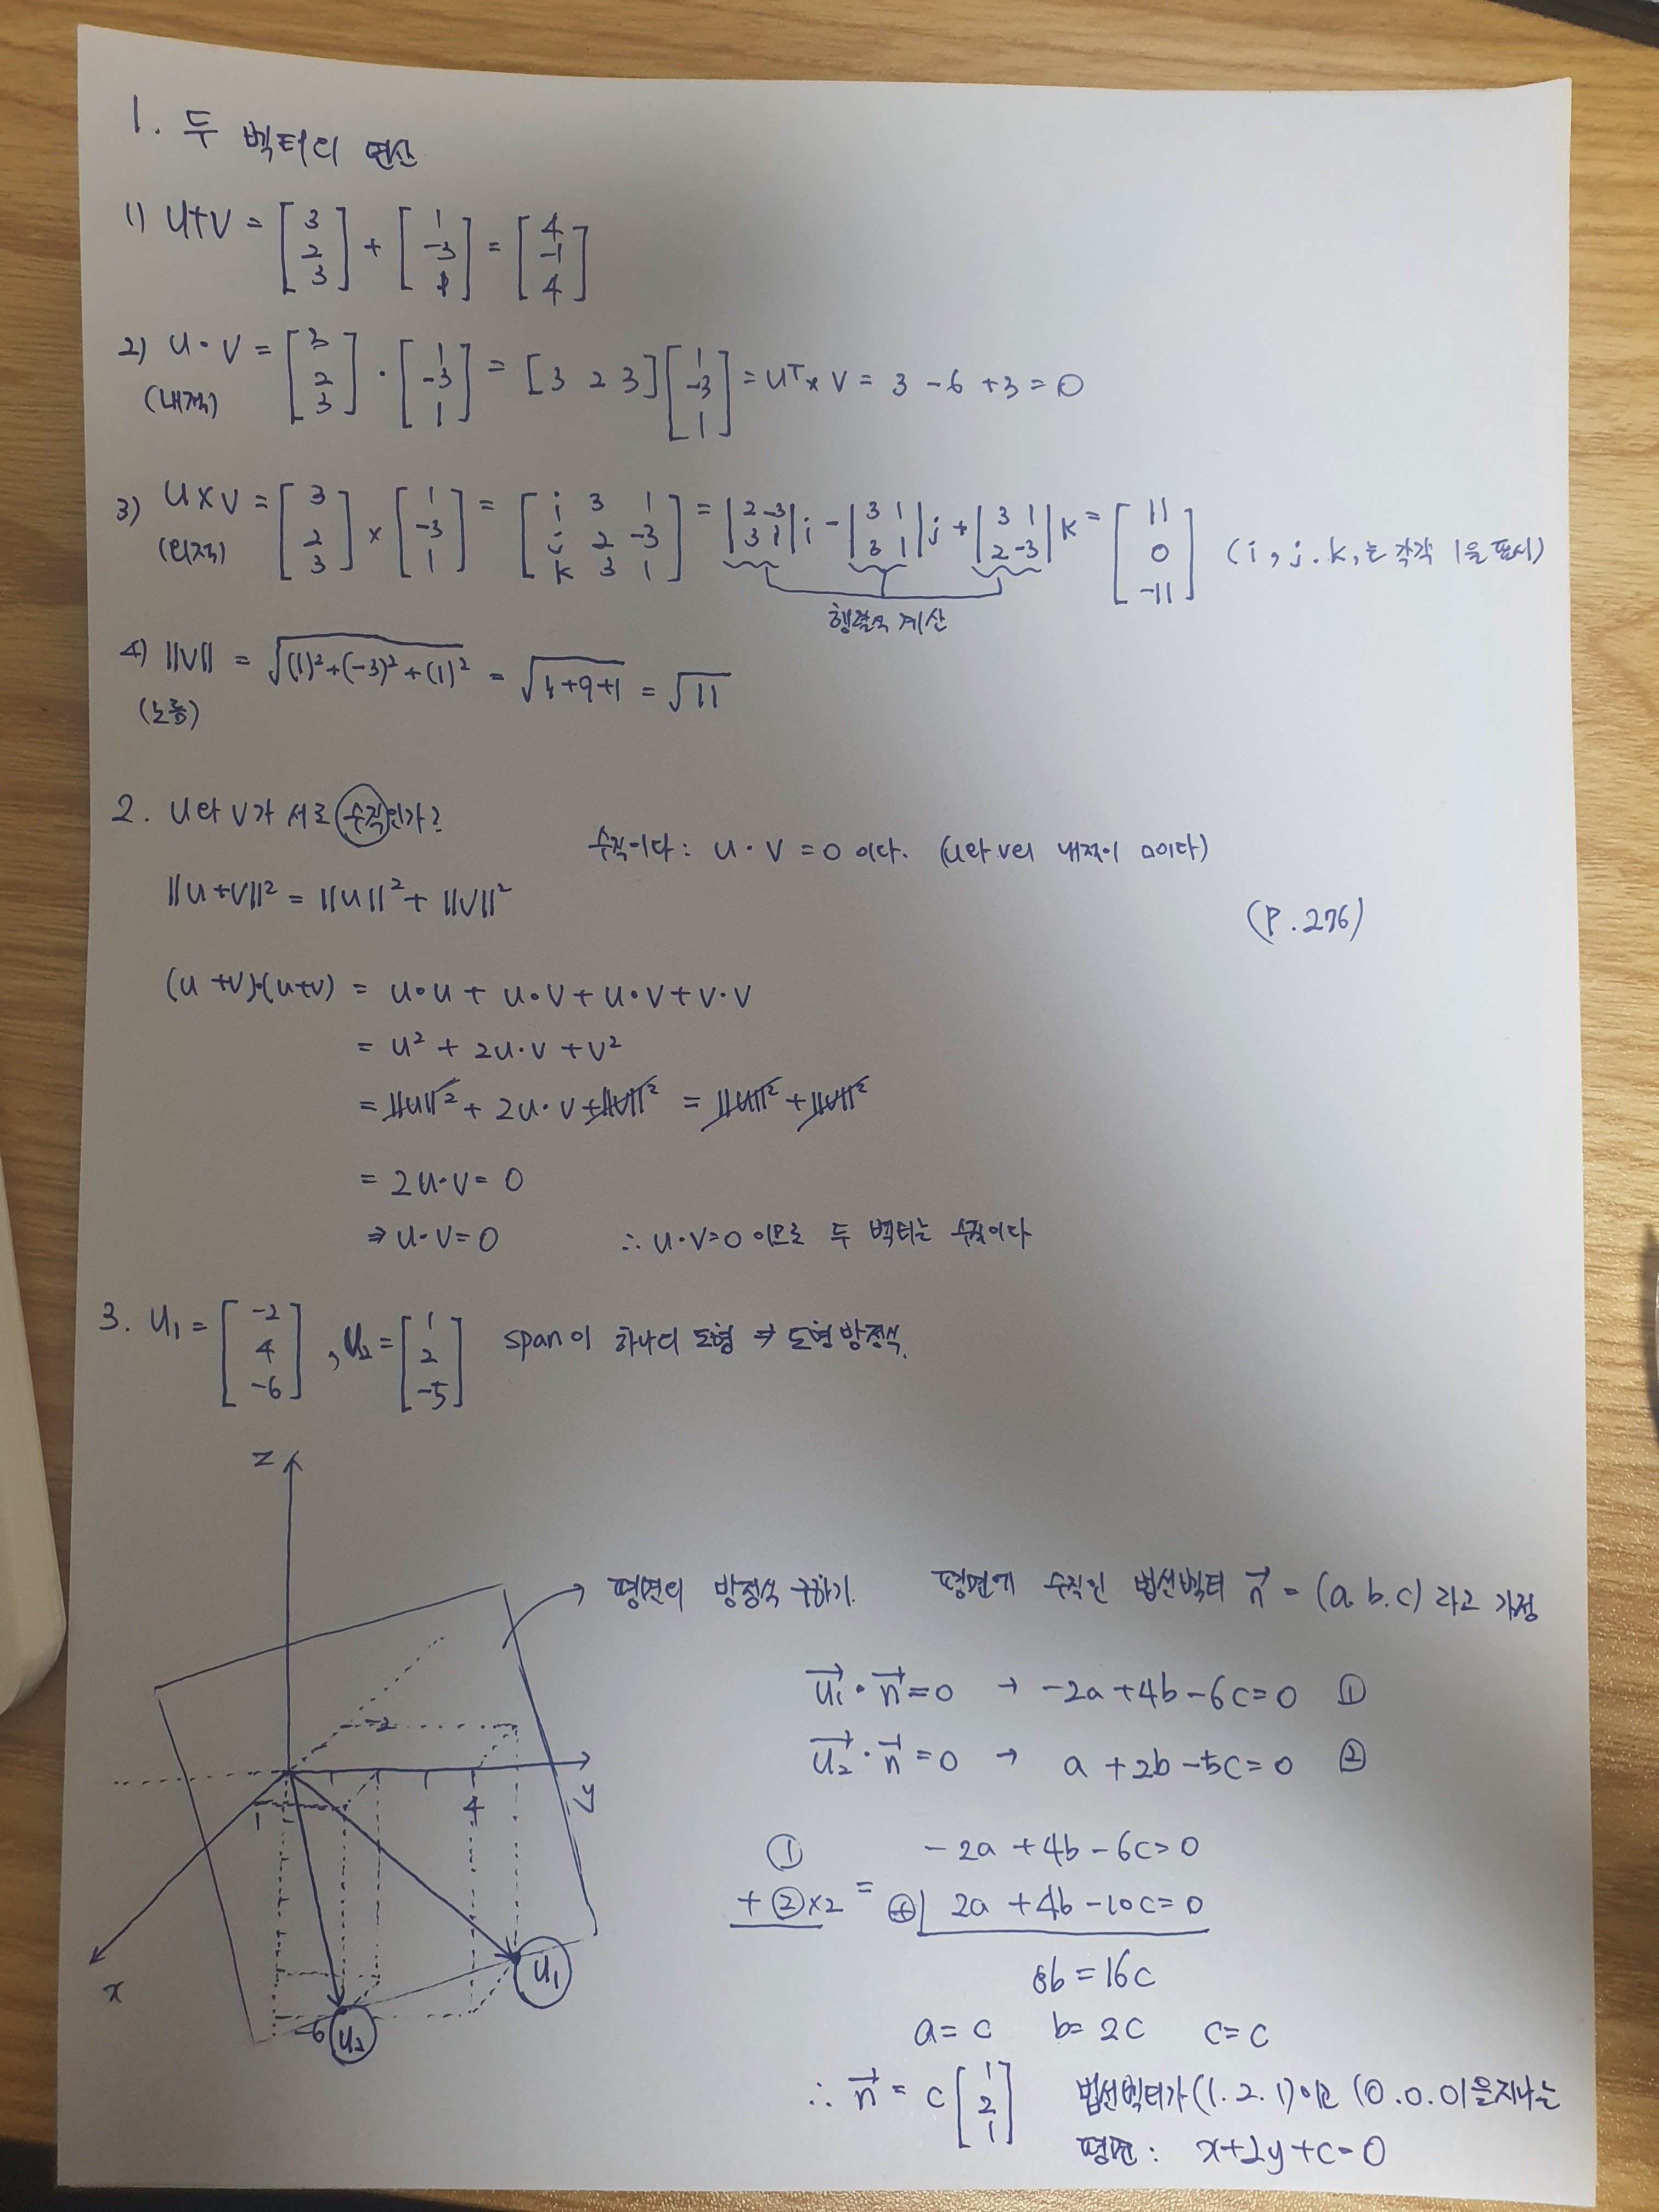 1. 두 벡터의 연산
1) u+v = [3 2 3] + [1 -3 1] = [4 -1 4]
2) u·v = [3 2 3] · [1 -3 1] = [3 2 3] [1 -3 1] = uᵀ× v = 3 -6 +3 = 0
(내적)
3) u×v = [3 2 3] × [1 -3 1] = [i 3 1 j 2 -3 k 3 1] = |2 -3 3 1| i - |3 1 3 1| j + |3 1 2 -3| k = [11 0 -11] (i, j. k,는 각각 1을 표시)
(외적)
행렬식 계산
4) ||v|| = √(1)²+(-3)²+(1)² = √1+9+1 = √11
(노름)
2. u와 v가 서로 수직인가?
수직이다: u·v = 0 이다. (u와 v의 내적이 0이다)
||u+v||² = ||u||² + ||v||²
(P.276)
(u+v)·(u+v) = u·u + u·v + u·v + v·v
= u² + 2u·v + v²
= ||u||² + 2u·v + ||v||² = ||u||² + ||v||²
= 2u·v = 0
⇒ u·v = 0 ∴ u·v=0 이므로 두 벡터는 수직이다
3. u₁ = [-2 4 -6], u₂ = [1 2 -5] span이 하나의 도형 ⇒ 도형방정식.
z
→ 평면의 방정식 구하기. 평면에 수직인 법선벡터 n⃗ = (a. b. c) 라고 가정
u₁⃗ · n⃗ = 0 → -2a+4b-6c=0 ①
-2
u₂⃗ · n⃗ = 0 → a+2b-5c=0 ②
y
1
4
① -2a+4b-6c=0
+ ②×2 = ⊕ 2a+4b-10c=0
8b = 16c
x
u₁
-6
u₂
a = c b = 2c c = c
∴ n⃗ = c [1 2 1] 법선벡터가 (1. 2. 1)이고 (0.0.0)을 지나는
평면: x+2y+c=0